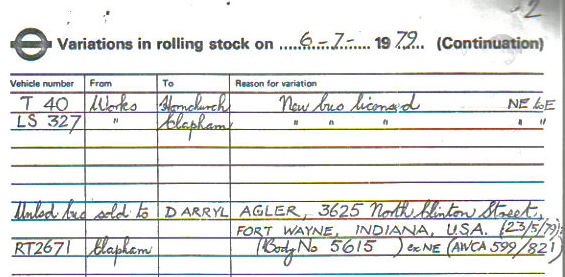 2
Variations in rolling stock on 6-7- 1979. (Continuation)
Vehicle number From To Reason for variation
T 40 Works Hornchurch New bus licensed NE to E
LS 327 " Clapham " " " " "
Unlsd bus sold to DARRYL AGLER, 3625 North Clinton Street,
FORT WAYNE, INDIANA, U.S.A. (23/5/79).
RT2671 Clapham (Body No 5615) ex NE (AWCA 599/821)